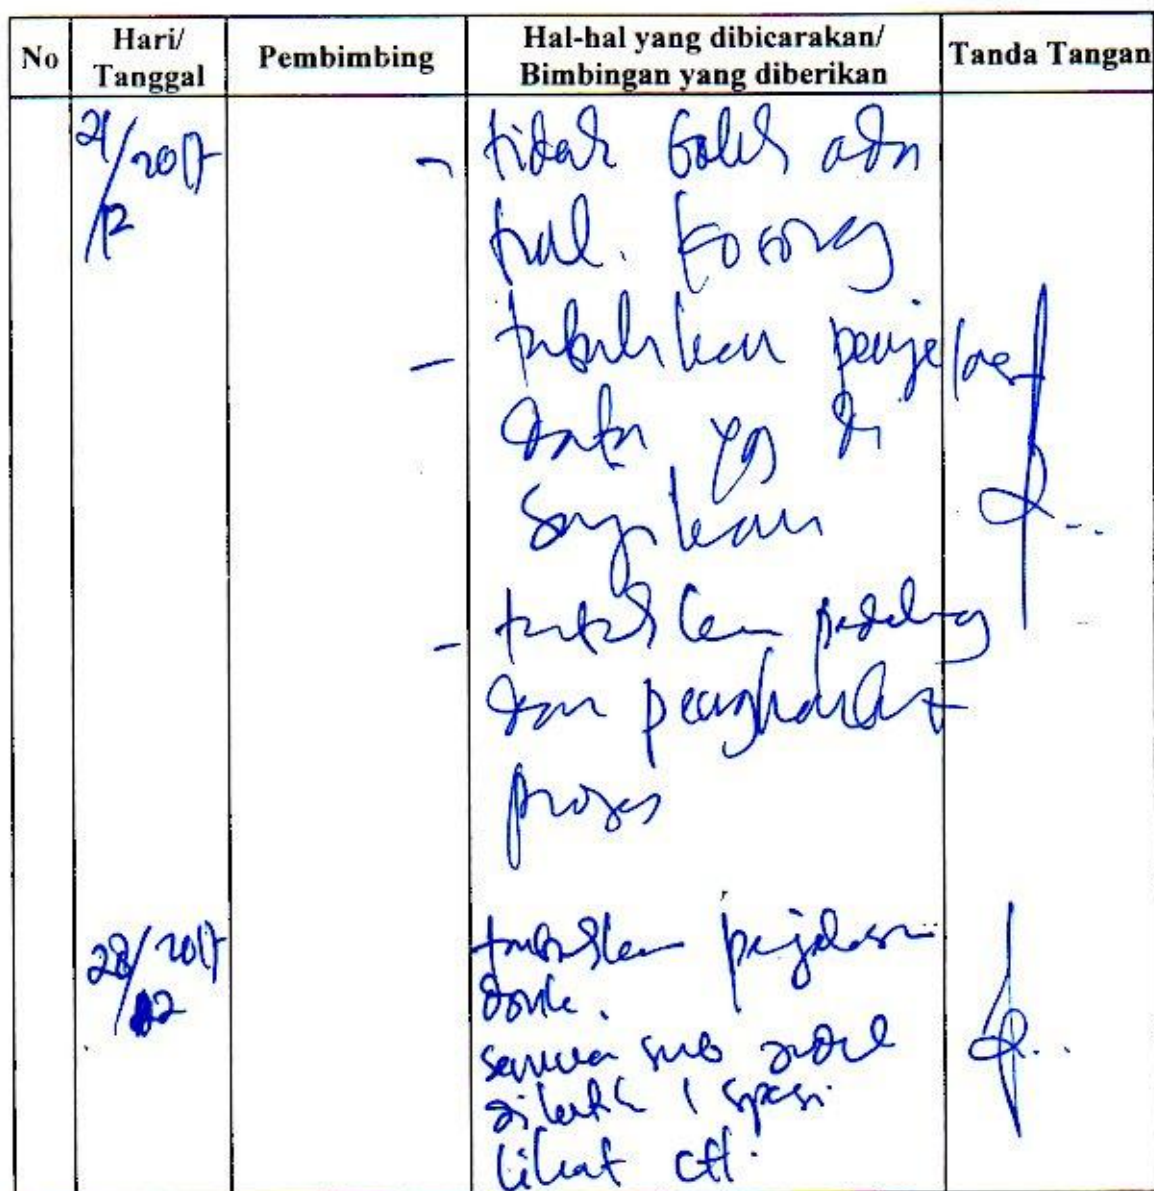 No Hari/ Tanggal Pembimbing Hal-hal yang dibicarakan/ Bimbingan yang diberikan Tanda Tangan
21/12 2017 - tidak boleh ada
hal. kosong
- tambahkan penjelas
data yg di
sajikan
- tambahkan
dan penghambat
proses
28/12 2017 tambahkan penjelasan
semua sub judul
diketik 1 spasi
lihat cth.